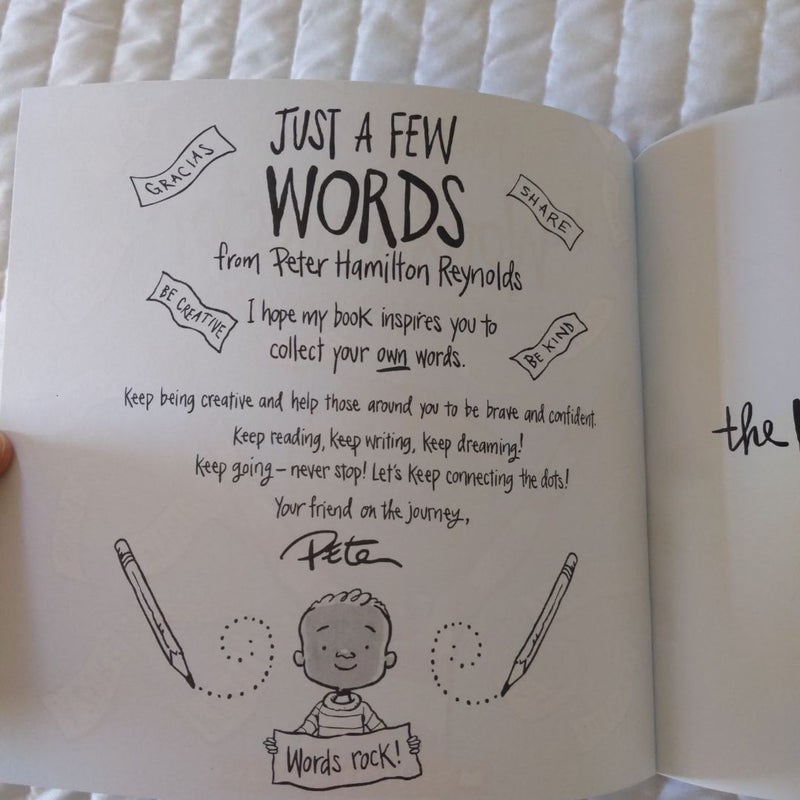 JUST A FEW
WORDS
from Peter Hamilton Reynolds
GRACIAS
SHARE
BE CREATIVE
BE KIND
I hope my book inspires you to
collect your own words.
Keep being creative and help those around you to be brave and confident.
Keep reading, keep writing, keep dreaming!
Keep going – never stop! Let's keep connecting the dots!
Your friend on the journey,
Peter
Words rock!
the